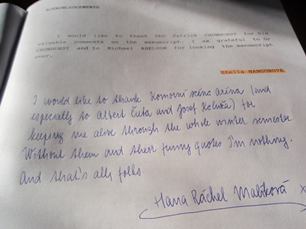 ACKNOWLEDGEMENTS
I would like to thank
for his
valuable comments on the manuscript. I am grateful to Dr
and to Michael for looking the manuscript
over.
I would like to thank Komorní scéna aréna (and
especially so Albert Čuba and Josef Kaluža) for
keeping me alive through the whole winter semester.
Without them and their funny quotes I'm nothing.
And that's all, folks.
Hana Ráchel Malíková